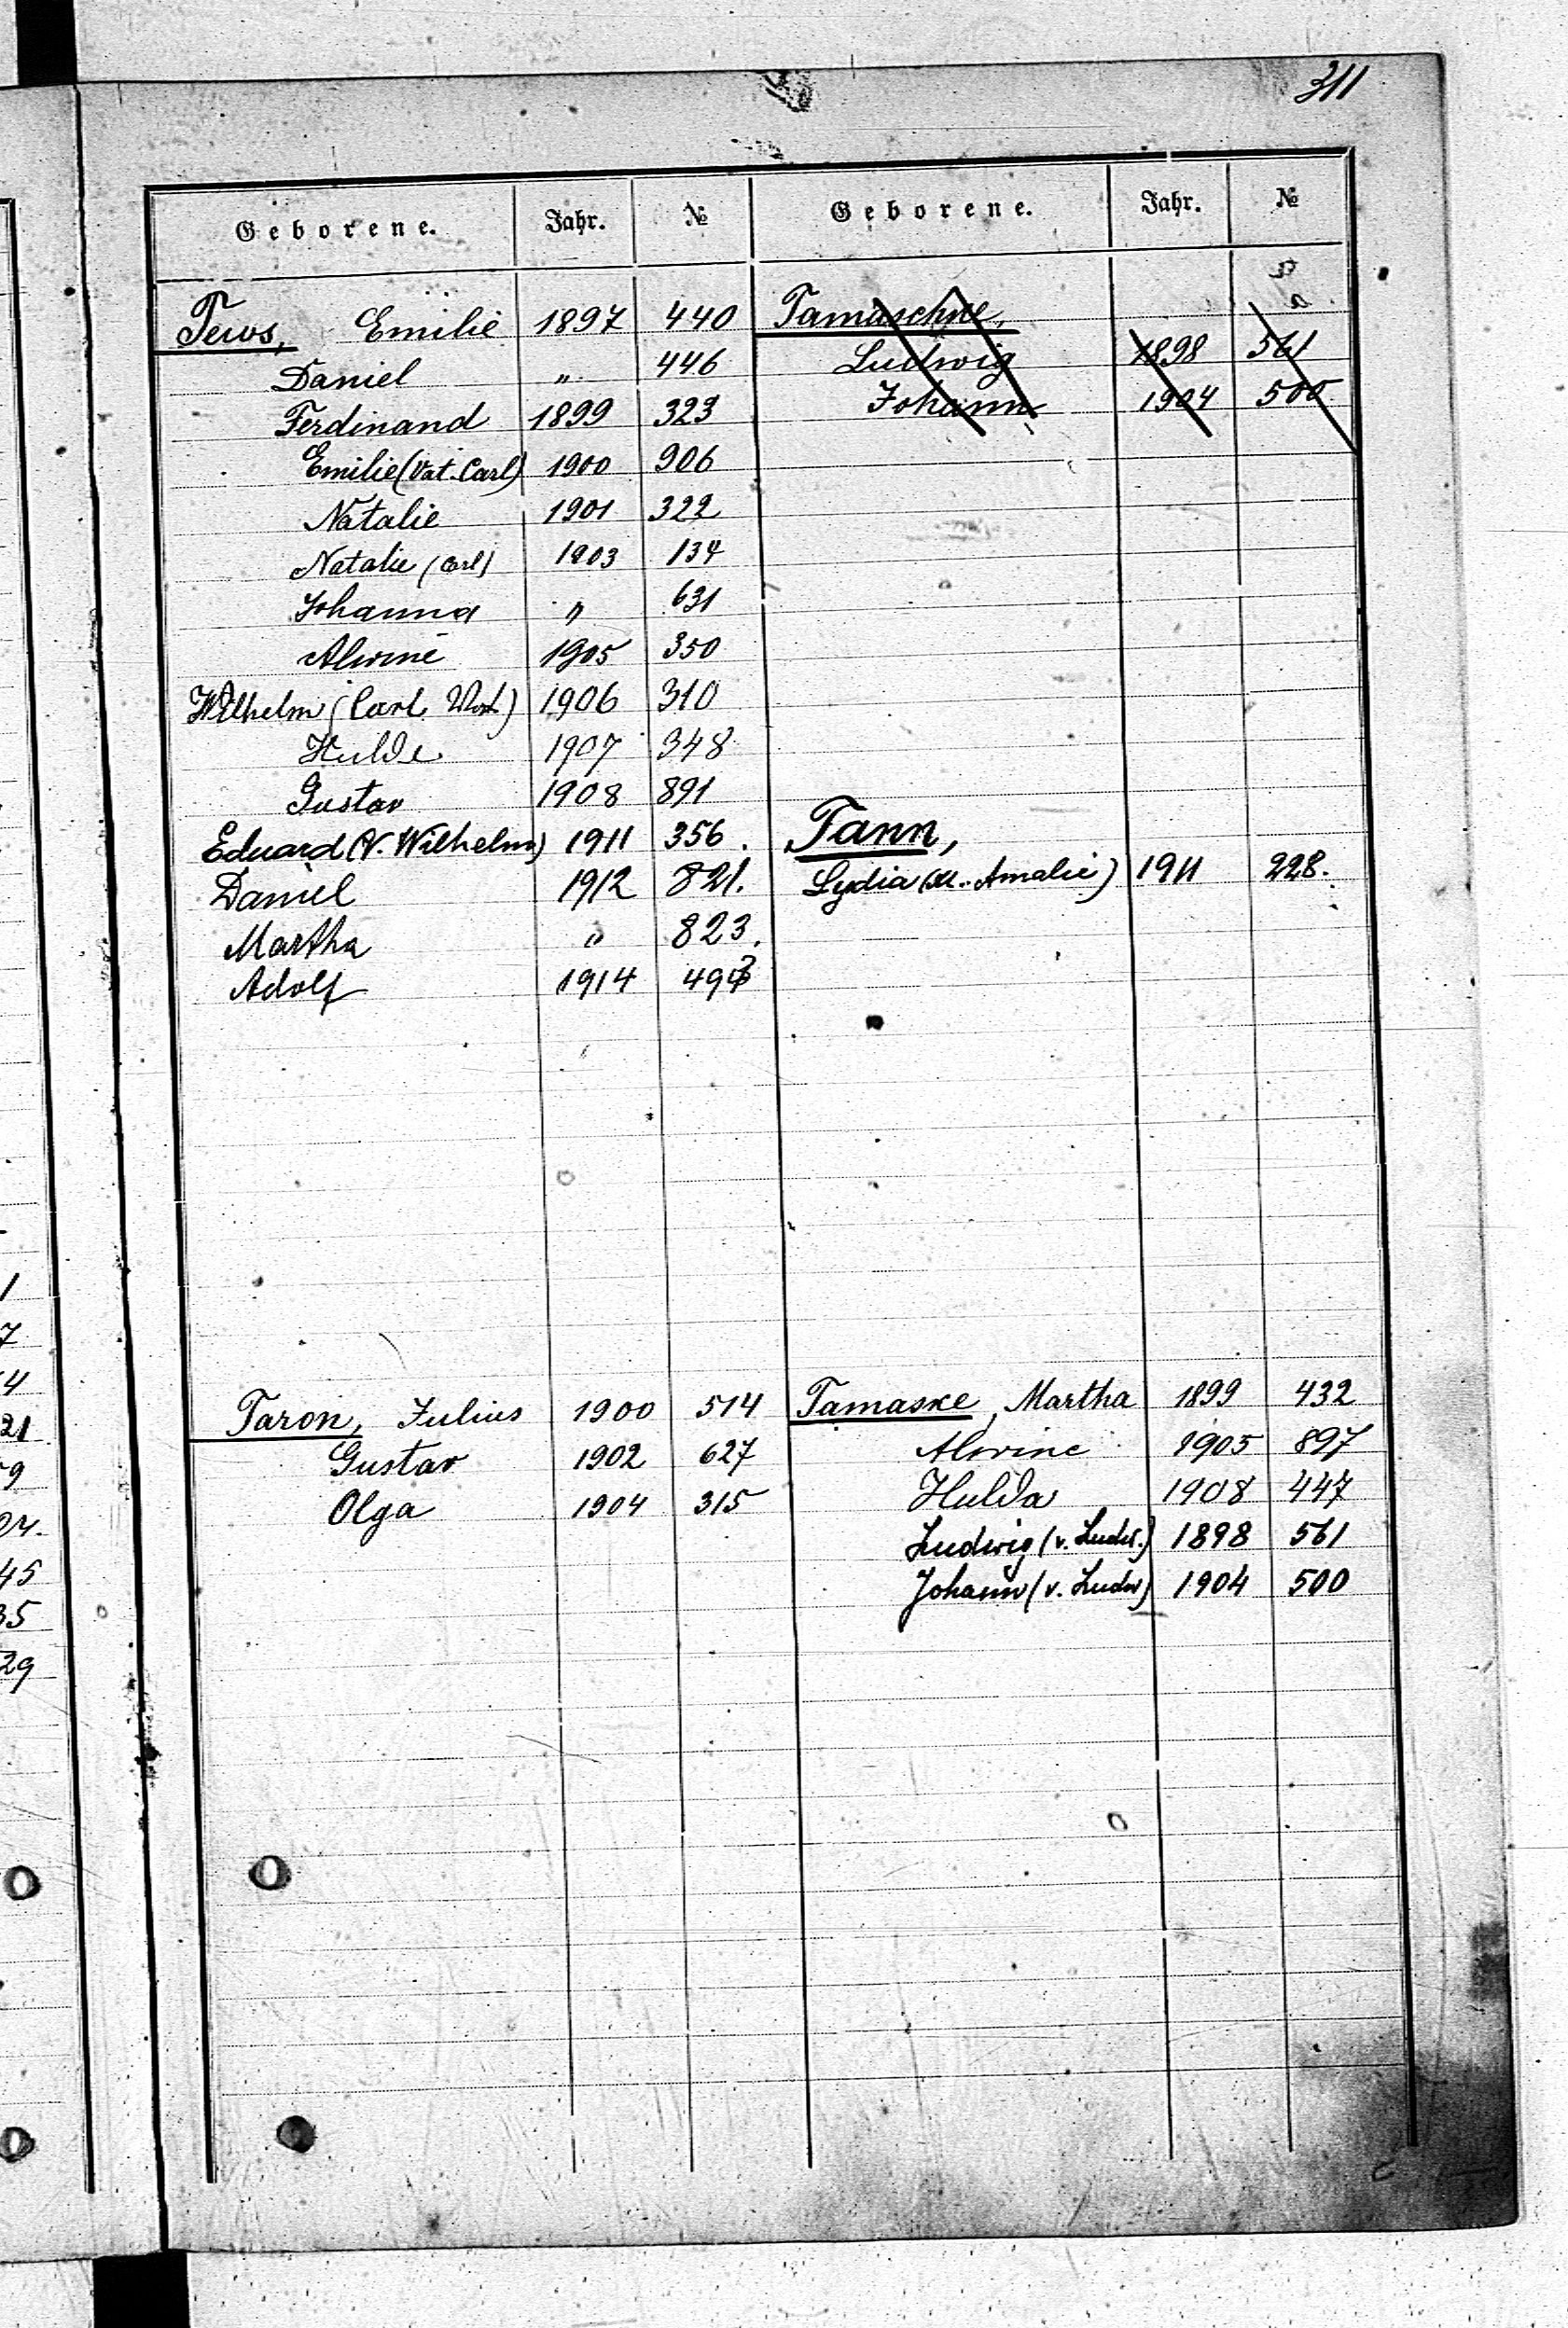 311
Geborene. Jahr. №
Tews, Emilie 1897 440
Daniel " 446
Ferdinand 1899 323
Emilie (Vat. Carl) 1900 906
Natalie 1901 322
Natalie (Carl) 1903 134
Johanna " 631
Alwine 1905 350
Wilhelm (Carl Vat) 1906 310
Hulde 1907 348
Gustav 1908 891
Eduard (V. Wilhelm) 1911 356.
Daniel 1912 821.
Martha " 823.
Adolf 1914 493
Taron, Julius 1900 514
Gustav 1902 627
Olga 1904 315
Geborene. Jahr. №
Tamaschke,
Ludwig 1898 561
Johann 1904 500
Tann,
Lydia (M. Amalie) 1911 228.
Tamaske, Martha 1899 432
Alwine 1905 897
Hulda 1908 447
Ludwig (v. Ludw.) 1898 561
Johann (v. Ludw) 1904 500